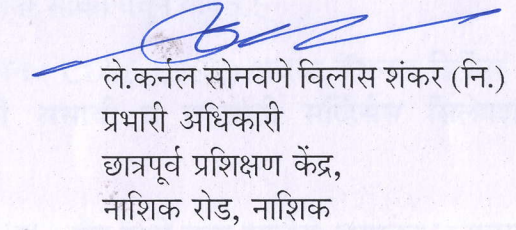 ले.कर्नल सोनवणे विलास शंकर (नि.)
प्रभारी अधिकारी
छात्रपूर्व प्रशिक्षण केंद्र,
नाशिक रोड, नाशिक